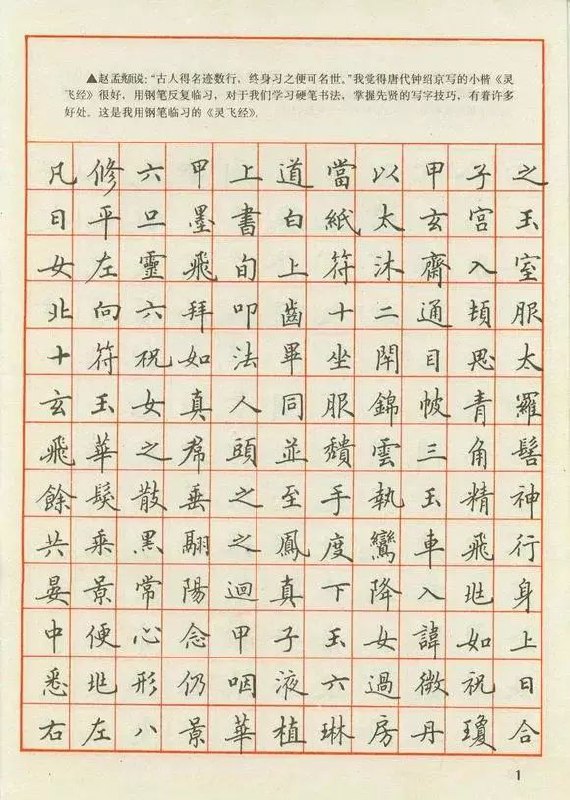 ▲赵孟頫说：“古人得名迹数行，终身习之便可名世。”我觉得唐代钟绍京写的小楷《灵
飞经》很好，用钢笔反复临习，对于我们学习硬笔书法，掌握先贤的写字技巧，有着许多
好处。这是我用钢笔临习的《灵飞经》。
凡修六甲上道當以甲子之
日平旦墨書白紙太玄宮玉
女左靈飛旬上符沐齋入室
北向六拜叩齒十二通頓服
十符祝如法畢坐閉目思太
玄玉女真人同服錦帔青羅
飛華之帬頭並穨雲三角髻
餘髮散垂之至手執玉精神
共乘黑翮之鳳度鸞車飛行
晏景常陽迴真下降入兆身
中便心念甲子玉女諱如上
悉兆形仍咽液六過微祝曰
右左八景華植琳房丹瓊合
1